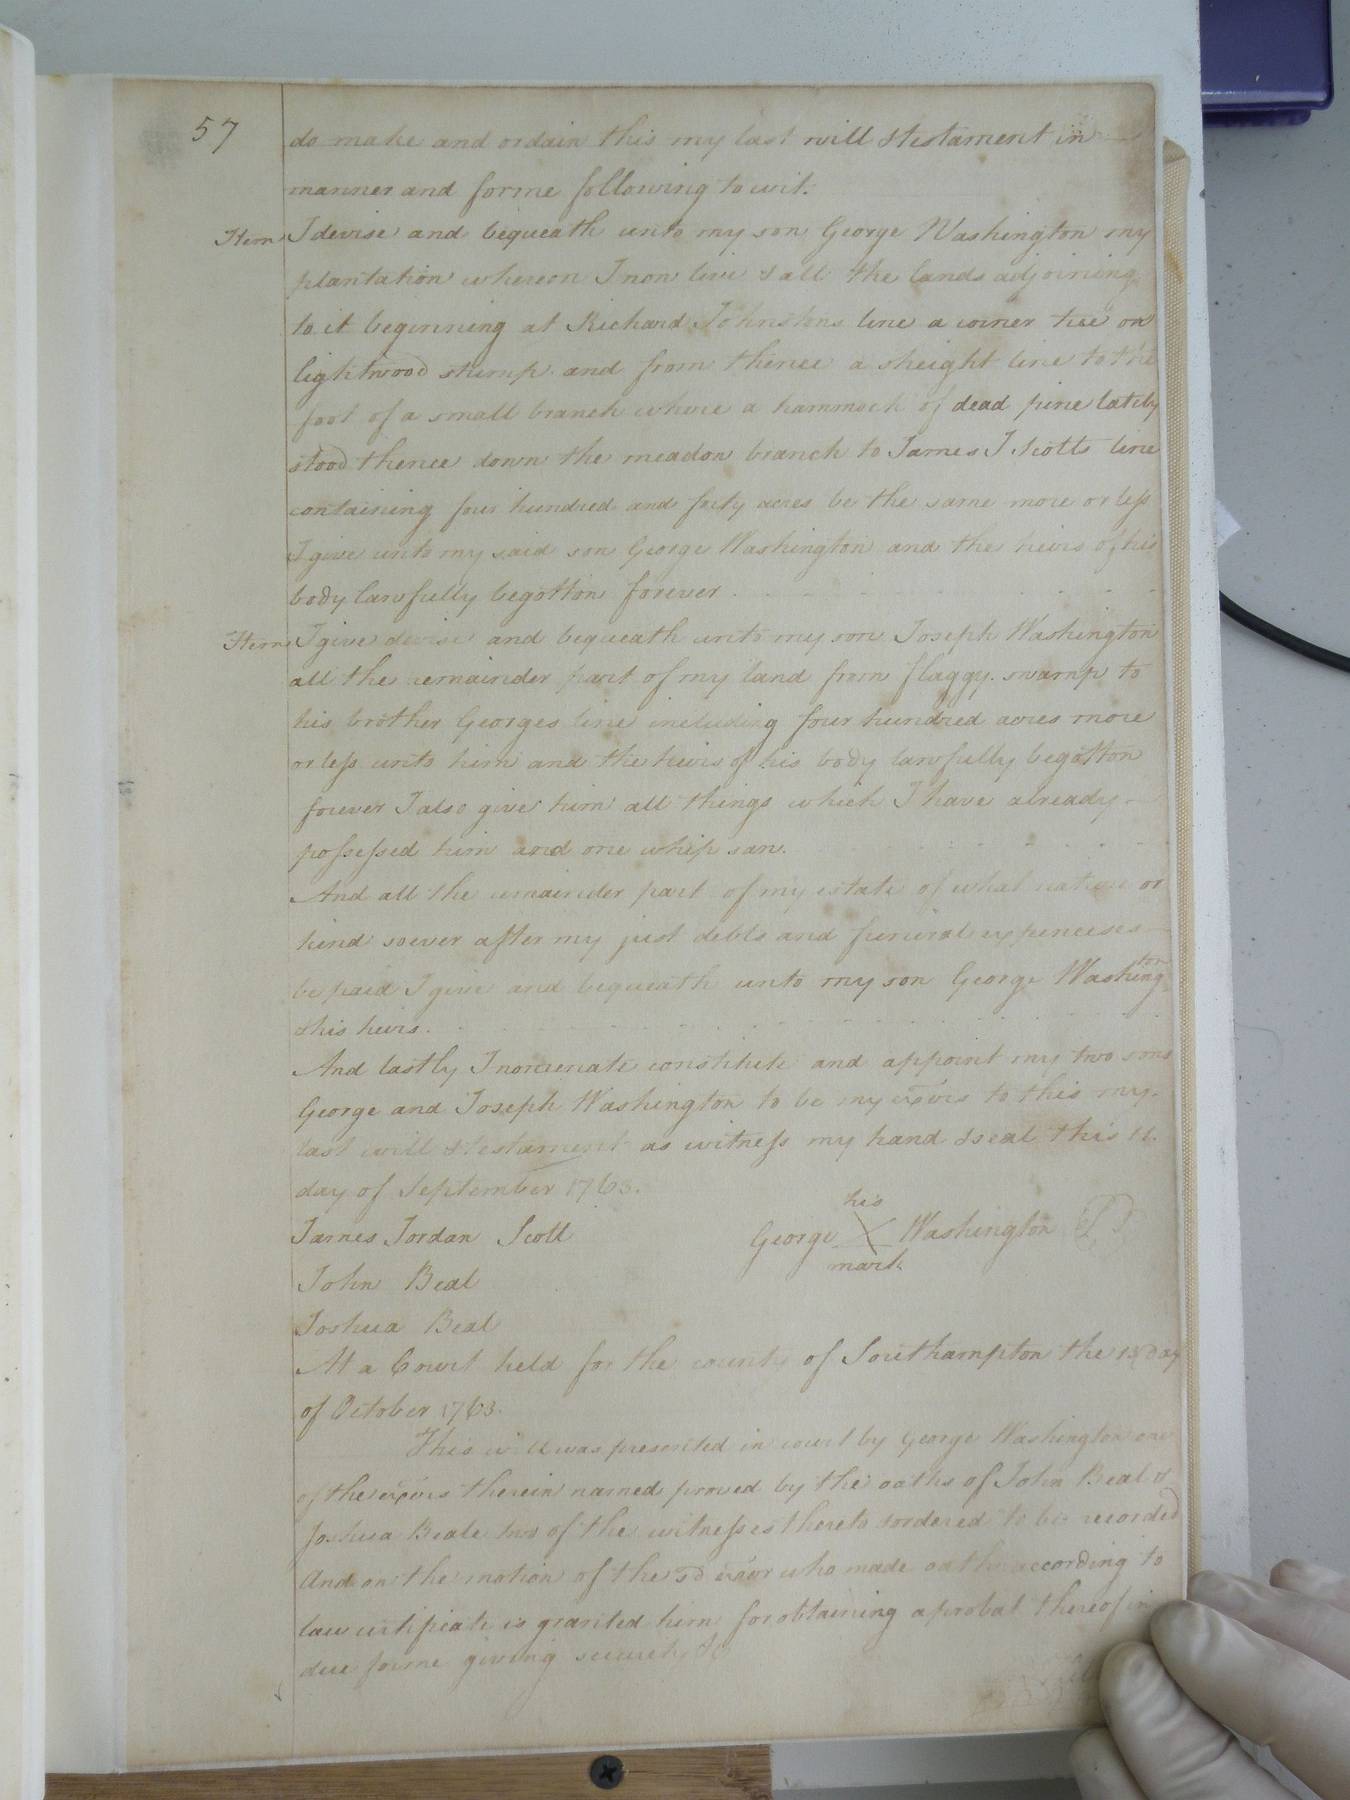 57
do make and ordain this my last will & testament in
manner and forme following to wit.
Item I devise and bequeath unto my son George Washington my
plantation whereon I now live & all the lands adjoining
to it beginning at Richard Johnstons line a corner tree on
lightwood stump and from thence a streight line to the
foot of a small branch where a hammock of dead pine lately
stood thence down the meadow branch to James J Scotts line
containing four hundred and forty acres be the same more or less
I give unto my said son George Washington and the heirs of his
body lawfully begotton forever
Item I give devise and bequeath unto my son Joseph Washington
all the remainder part of my land from flaggy swamp to
his brother Georges line including four hundred acres more
or less unto him and the heirs of his body lawfully begotton
forever I also give him all things which I have already
possessed him and one whip saw.
And all the remainder part of my estate of what nature or
kind soever after my just debts and funiral expencesses
be paid I give and bequeath unto my son George Washington
& his heirs.
And lastly I nomenate constitute and appoint my two sons
George and Joseph Washington to be my exors to this my
last will & testament as witness my hand & seal this 11.
day of September 1763.
his
James Jordan Scott George X Washington
mark
John Beal
Joshua Beal
At a Court held for the county of Southampton the 13 day
of October 1763.
This will was presented in court by George Washington one
of the exors therein named proved by the oaths of John Beal &
Joshua Beale two of the witnesses thereto & ordered to be recorded
And on the motion of the sd exor who made oath according to
law certificate is granted him for obtaining a probat thereof in
due forme giving security &c